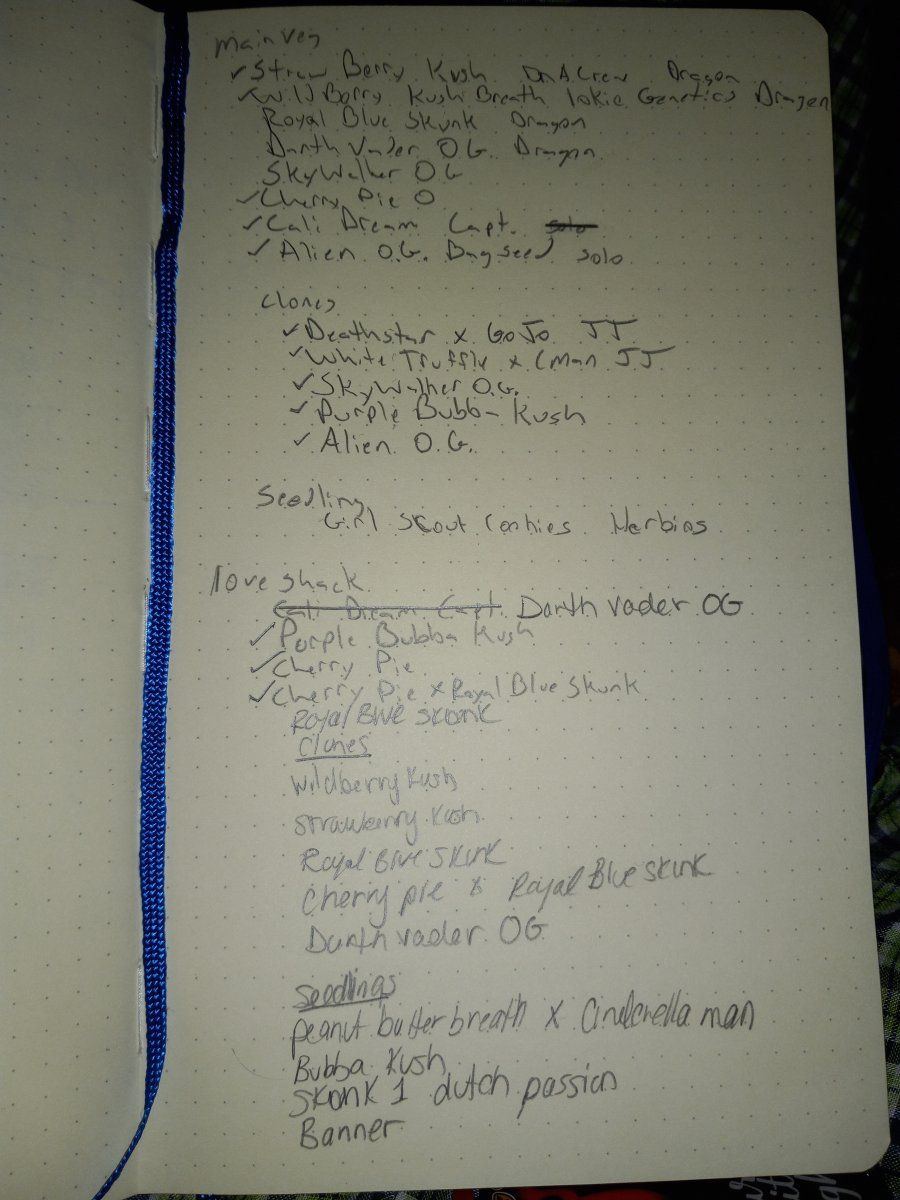 main veg
✓ Straw Berry Kush DnA Crew Dragon
✓ Wild Berry Kush Breath lokie Genetics Dragon
Royal Blue Skunk Dragon
Darth Vader O.G. Dragon
SkyWalker OG
✓ Cherry Pie O
✓ Cali Dream Capt. solo
✓ Alien O.G. Bagseed solo
Clones
✓ Deathstar x GoJo JJ
✓ White Truffle x CMan JJ
✓ SkyWalker O.G.
✓ Purple Bubba Kush
✓ Alien O.G.
Seedling
Girl Scout Cookies Herbies
love shack
Cali Dream Capt. Darth vader OG
✓ Purple Bubba Kush
✓ Cherry Pie
✓ Cherry Pie x Royal Blue Skunk
Royal Blue skunk
Clones
Wildberry Kush
strawberry Kush
Royal Blue skunk
Cherry pie x Royal Blue skunk
Darth vader OG
seedlings
peanut butter breath x Cinderella man
Bubba Kush
skunk 1 dutch passion
Banner